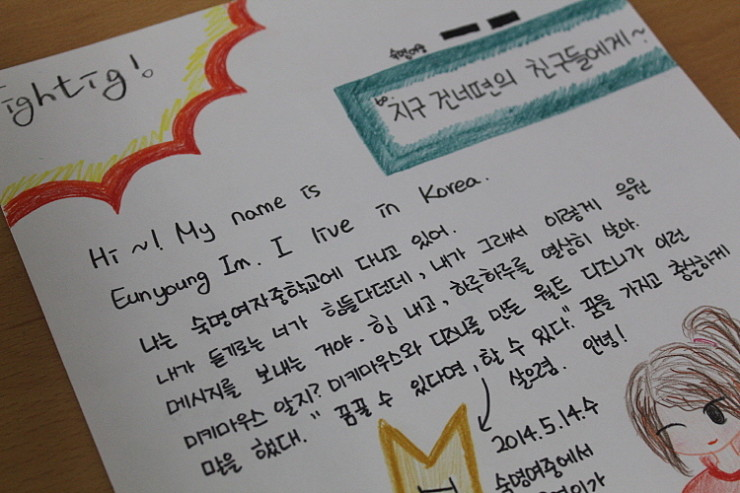 ightig!
숙명여중
to. 지구 건너편의 친구들에게~
Hi ~! My name is
Eunyoung Im. I live in Korea.
나는 숙명여자중학교에 다니고 있어.
내가 듣기로는 너가 힘들다던데, 내가 그래서 이렇게 응원
메시지를 보내는 거야. 힘 내고, 하루하루를 열심히 살아.
미키마우스 알지? 미키마우스와 디즈니를 만든 월트 디즈니가 이런
말을 했대. "꿈꿀 수 있다면, 할 수 있다." 꿈을 가지고 충실하게
살으렴. 안녕!
2014.5.14.수
숙명여중에서